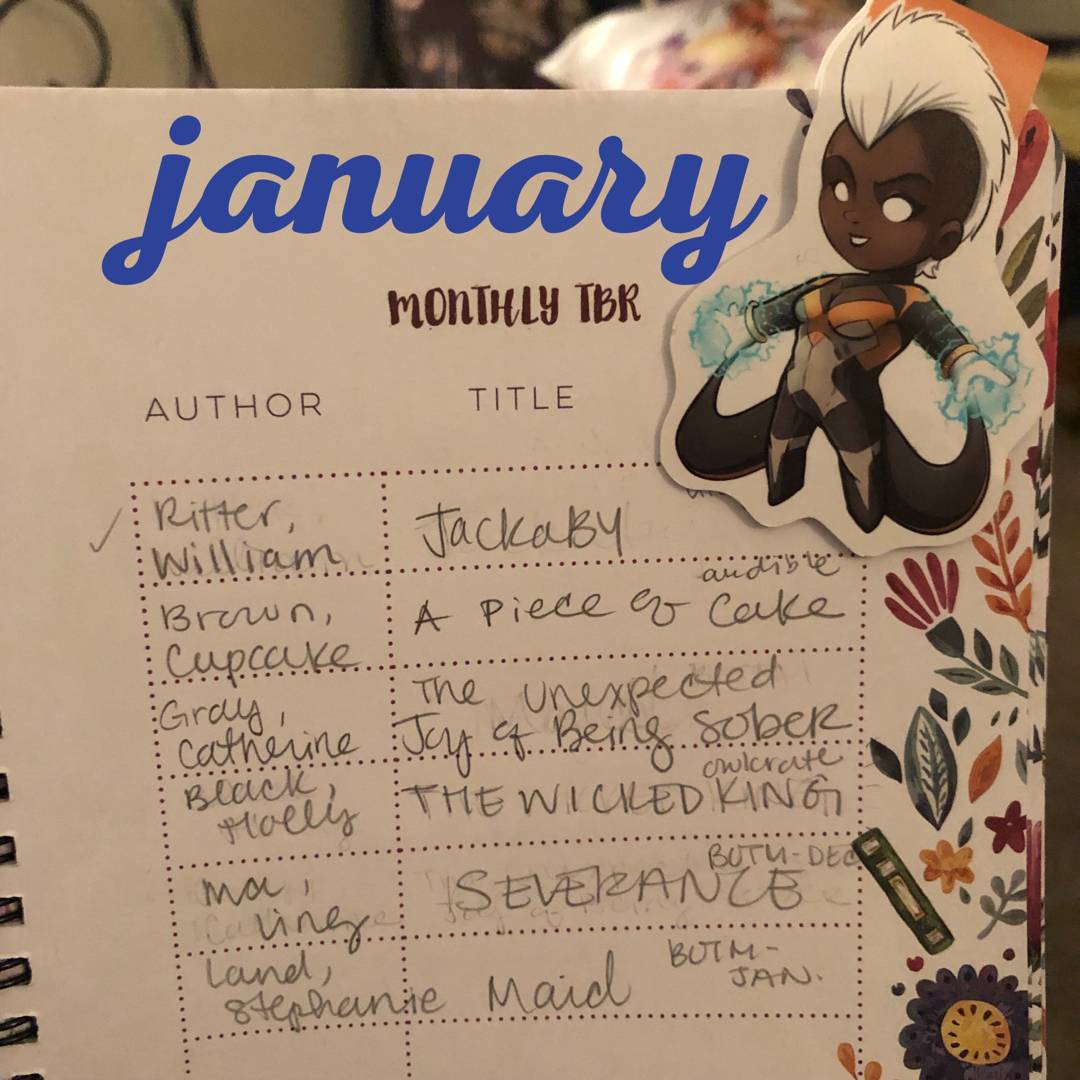 january
MONTHLY TBR
AUTHOR TITLE
Ritter,
William
JackaBy
Brown,
Cupcake
audible
A Piece of Cake
Gray,
Catherine
The unexpected
Joy of Being Sober
Black,
Holly
owlcrate
THE WICKED KING
Ma,
Ling
BOTM-DEC
SEVERANCE
Land,
Stephanie
BOTM-
JAN.
Maid